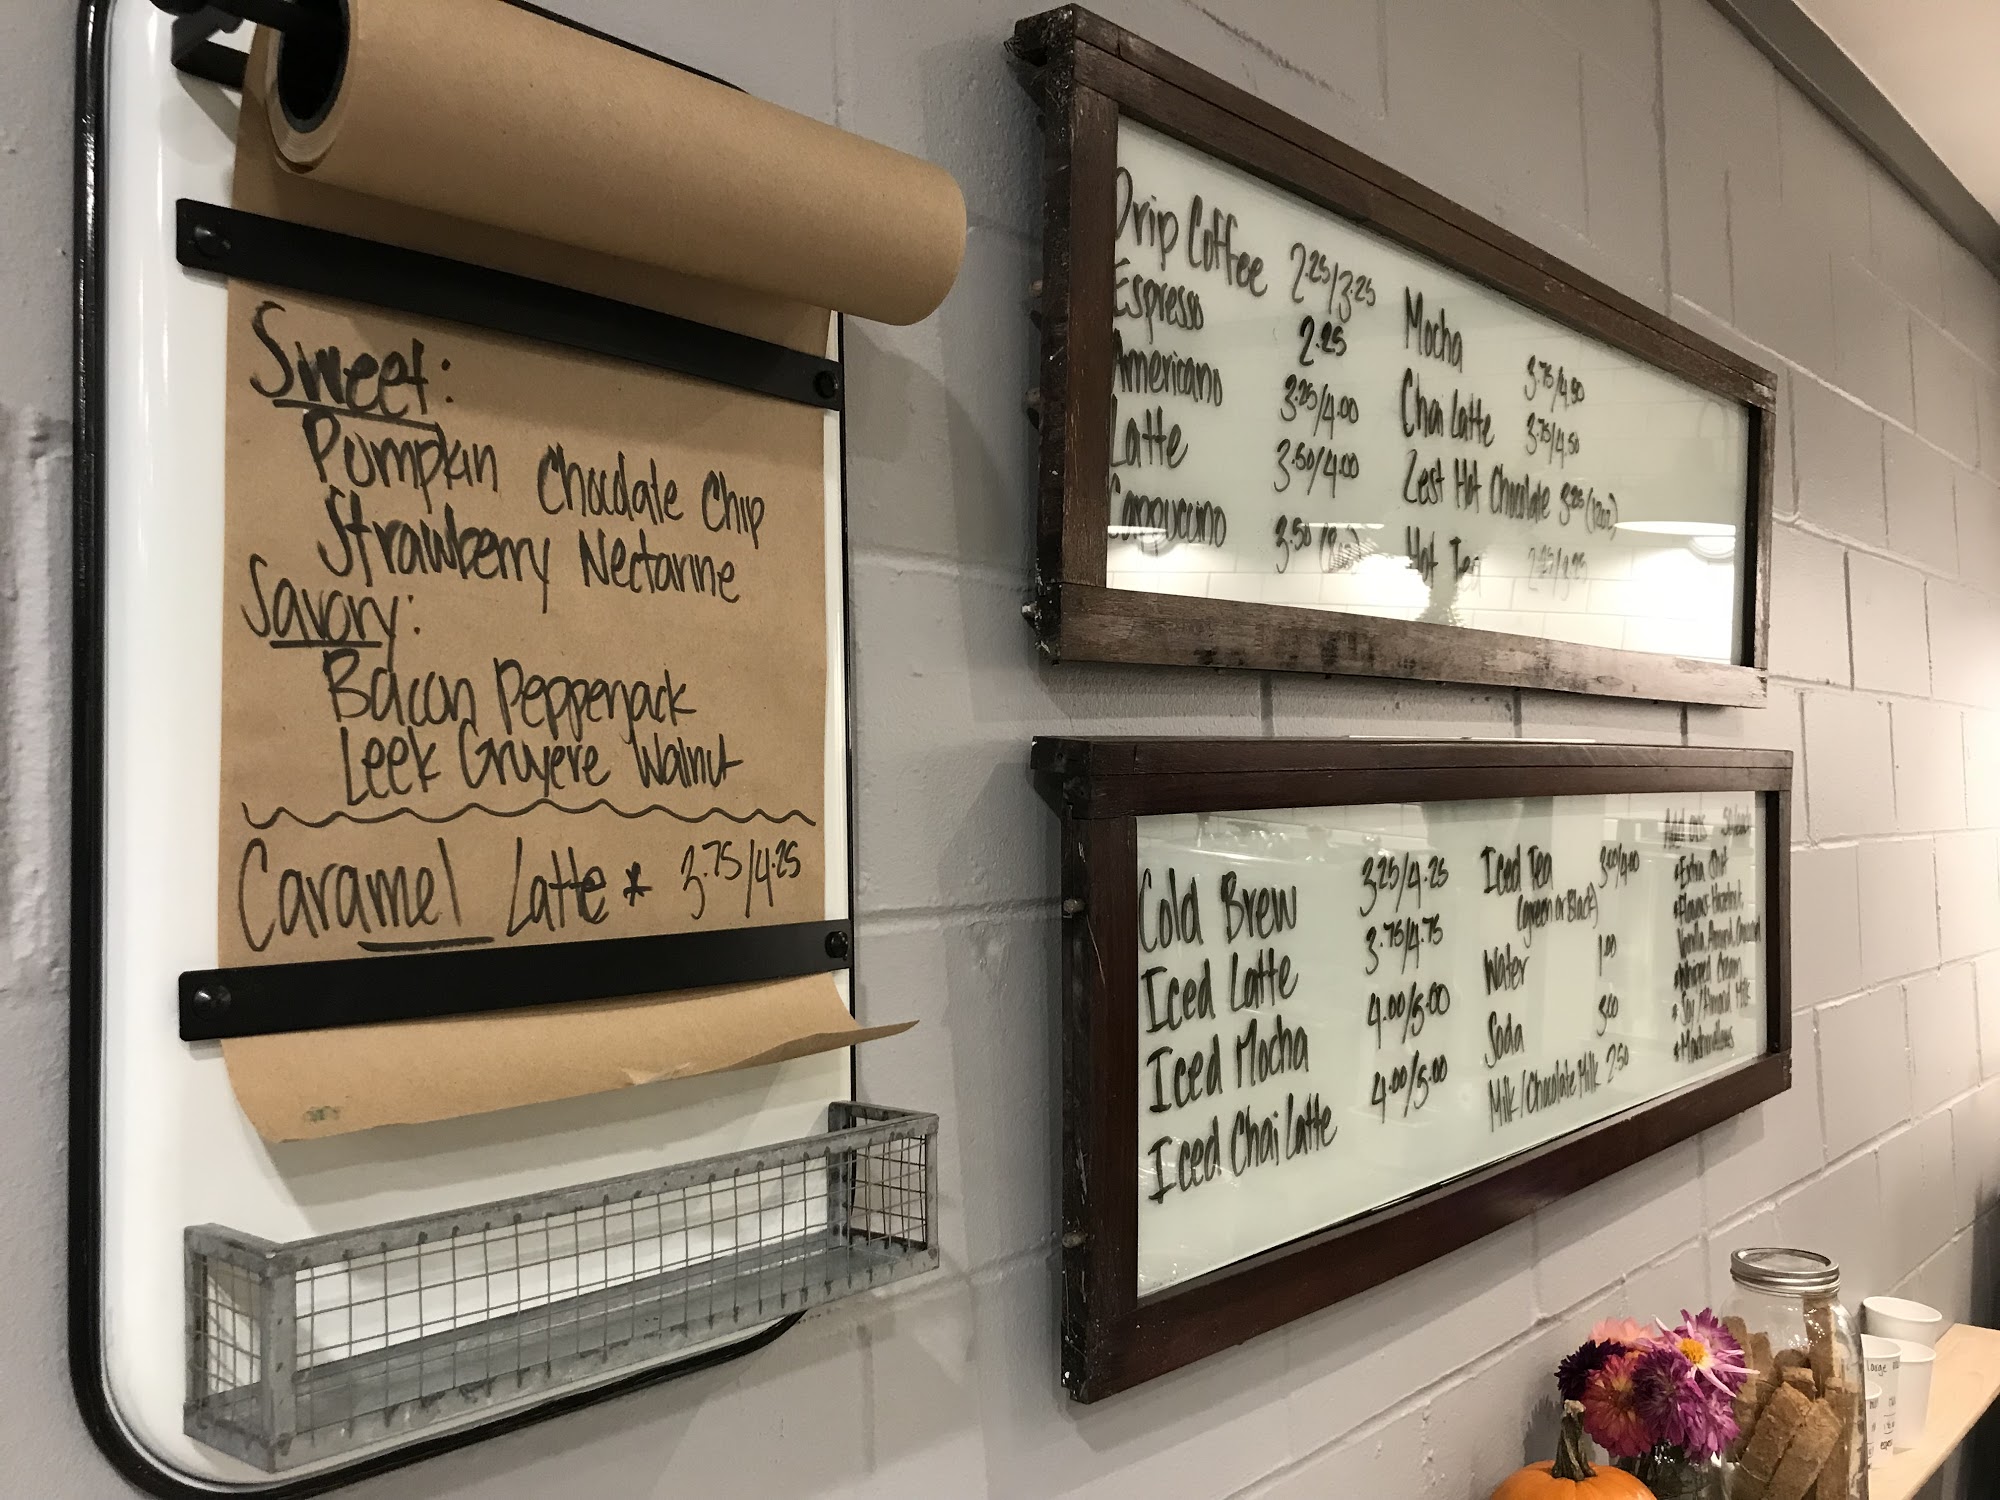 Sweet:
Pumpkin Chocolate Chip
Strawberry Nectarine
Savory:
Bacon Pepperjack
Leek Gruyere Walnut
Caramel Latte * 3.75/4.25
Drip Coffee 2.25/3.25
Espresso 2.25
Americano 3.25/4.00
Latte 3.50/4.00
Cappuccino 3.50 (8oz)
Mocha 3.75/4.50
Chai Latte 3.75/4.50
Zest Hot Chocolate 3.25 (12oz)
Hot Tea
Cold Brew 3.25/4.25
Iced Latte 3.75/4.75
Iced Mocha 4.00/5.00
Iced Chai Latte 4.00/5.00
Iced Tea 3.00/4.00
(green or Black)
Water 1.00
Soda 3.00
Milk/Chocolate Milk 2.50
Add ons
*Extra Shot
*Flavors Hazelnut,
Vanilla, Almond,
*Whipped Cream
*Soy/Almond Milk
*Marshmallows